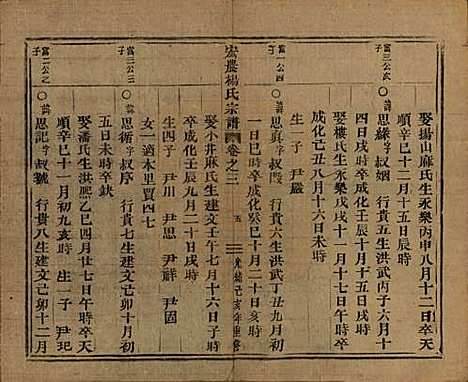 娶揚山麻氏生永樂丙申八月十二日卒天
順辛巳十二月十五日辰時
富三公次子
○諱思緣字叔姻 行貴五生洪武丙子六月十
四日戌時卒成化壬辰十月十五日
娶樓氏生永樂戊戌十一月十七日午時卒
成化己丑八月十六日未時
生一子 尹嚴
富一公四子
○諱思真字叔 行貴六生洪武丁丑九月
一日巳時卒成化癸巳十月二十日亥時
宏農楊氏宗譜 卷之二 五 光緒己亥年重修
娶小井麻氏生建文壬午七月十六日子時
卒成化壬辰九月二十日戌時
生四子 尹川 尹思 尹祥 尹固
女一 適本里賈四七
富二公三子
○諱思衛字叔序 行貴七生建文己卯十月初
五日未時卒缺
娶潘氏生洪熙乙巳四月廿七日午時卒天
順辛巳十一月初九亥時 生一子 尹玘
富二公之子
○諱思記字叔號 行貴八生建文己卯十二月